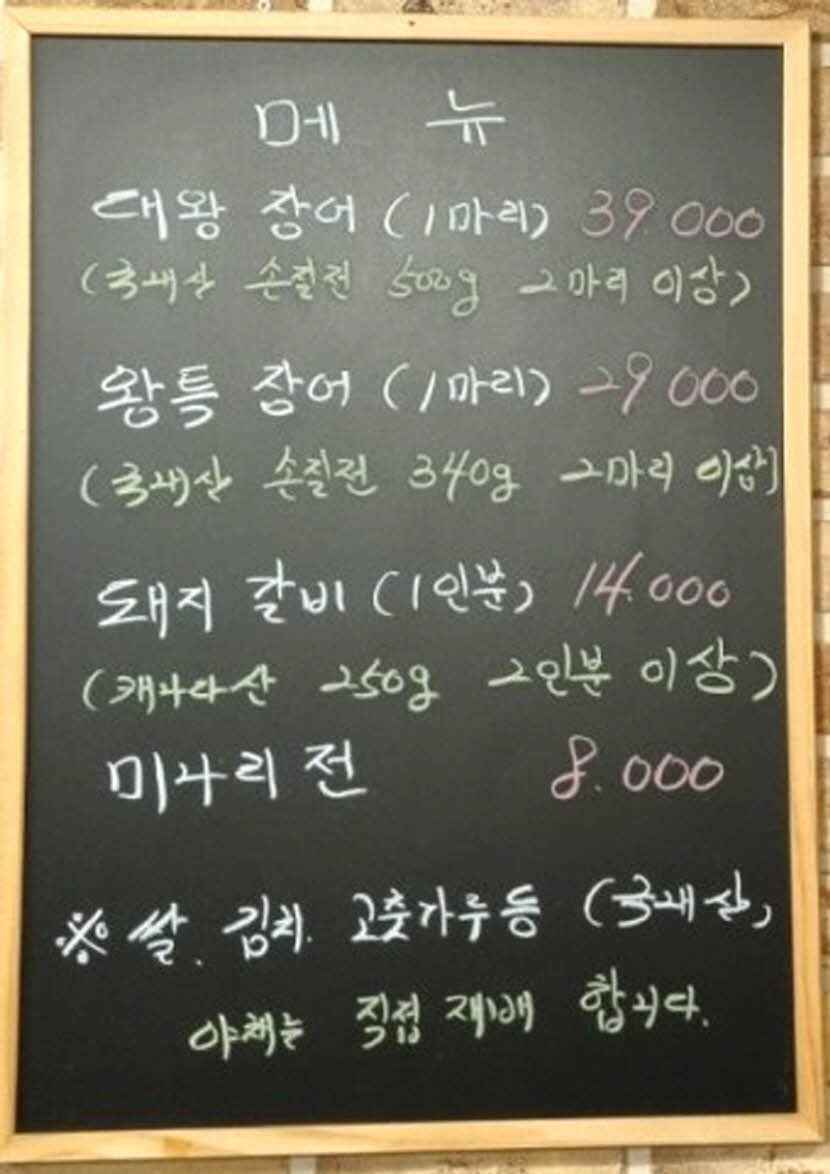 메 뉴
대왕 장어 (1마리) 39.000
(국내산 손질전 500g 2마리 이상)
왕특 장어 (1마리) 29.000
(국내산 손질전 340g 2마리 이상)
돼지 갈비 (1인분) 14.000
(캐나다산 250g 2인분 이상)
미나리 전 8.000
※ 쌀. 김치. 고춧가루등 (국내산)
야채는 직접 재배 합니다.